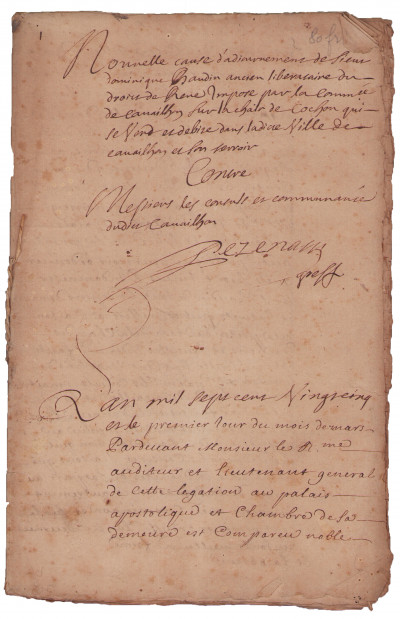 Nouvelle cause d'adiournement de sieur
dominique Baudin ancien liberataire du
droit de Reve Imposé par la commté
de cavaillon sur la chair de Cochon qui
se Vend et debite dans ladicte Ville de
cavaillon et son terroir
Contre
Messieurs les consuls et communauté
dudict Cavaillon
Pezenas
greff
L'an mil sept cent Vingtcinq
et le premier Jour du mois de mars
Pardevant Monsieur le Rme
auditeur et lieutenant general
de cette legation au palais
apostolique et Chambre de sa
demeure est Compareu noble